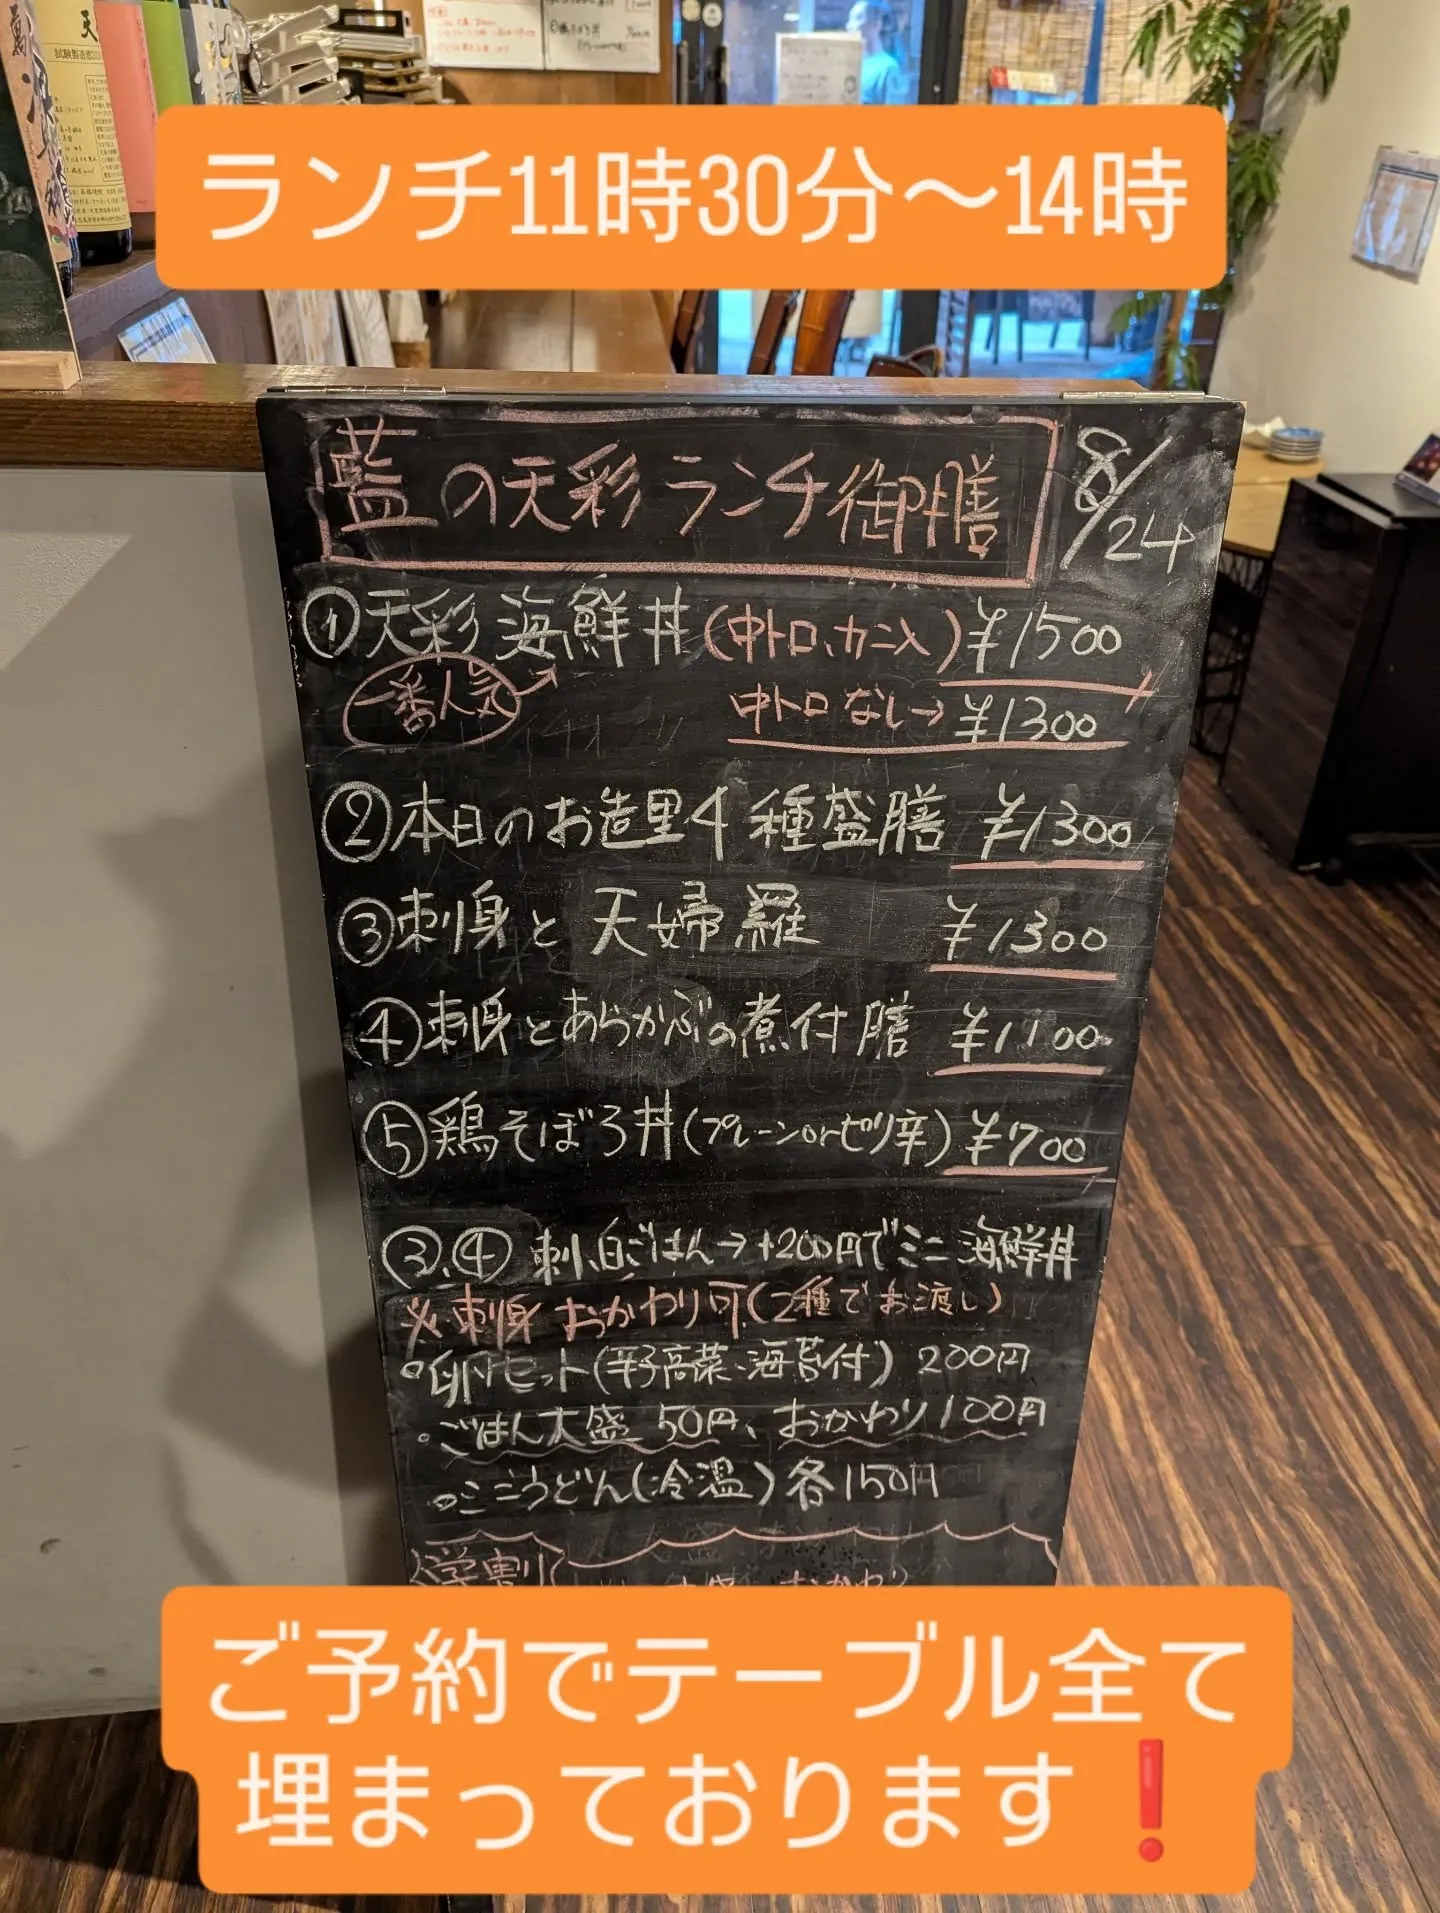 ランチ11時30分〜14時
藍の天彩ランチ御膳 8/24
①天彩海鮮丼(中トロ、カニ入)¥1500
一番人気
中トロなし→¥1300
②本日のお造里4種盛膳 ¥1300
③刺身と天婦羅 ¥1300
④刺身とあらかぶの煮付膳 ¥1100
⑤鶏そぼろ丼(プレーンorピリ辛)¥700
③、④ 刺、白ごはん→+200円でミニ海鮮丼
※刺身おかわり可(2種でお渡し)
卵セット(辛子高菜、海苔付) 200円
ごはん大盛 50円、おかわり100円
ミニうどん(冷温)各150円
学割
おかわり
ご予約でテーブル全て
埋まっております❗